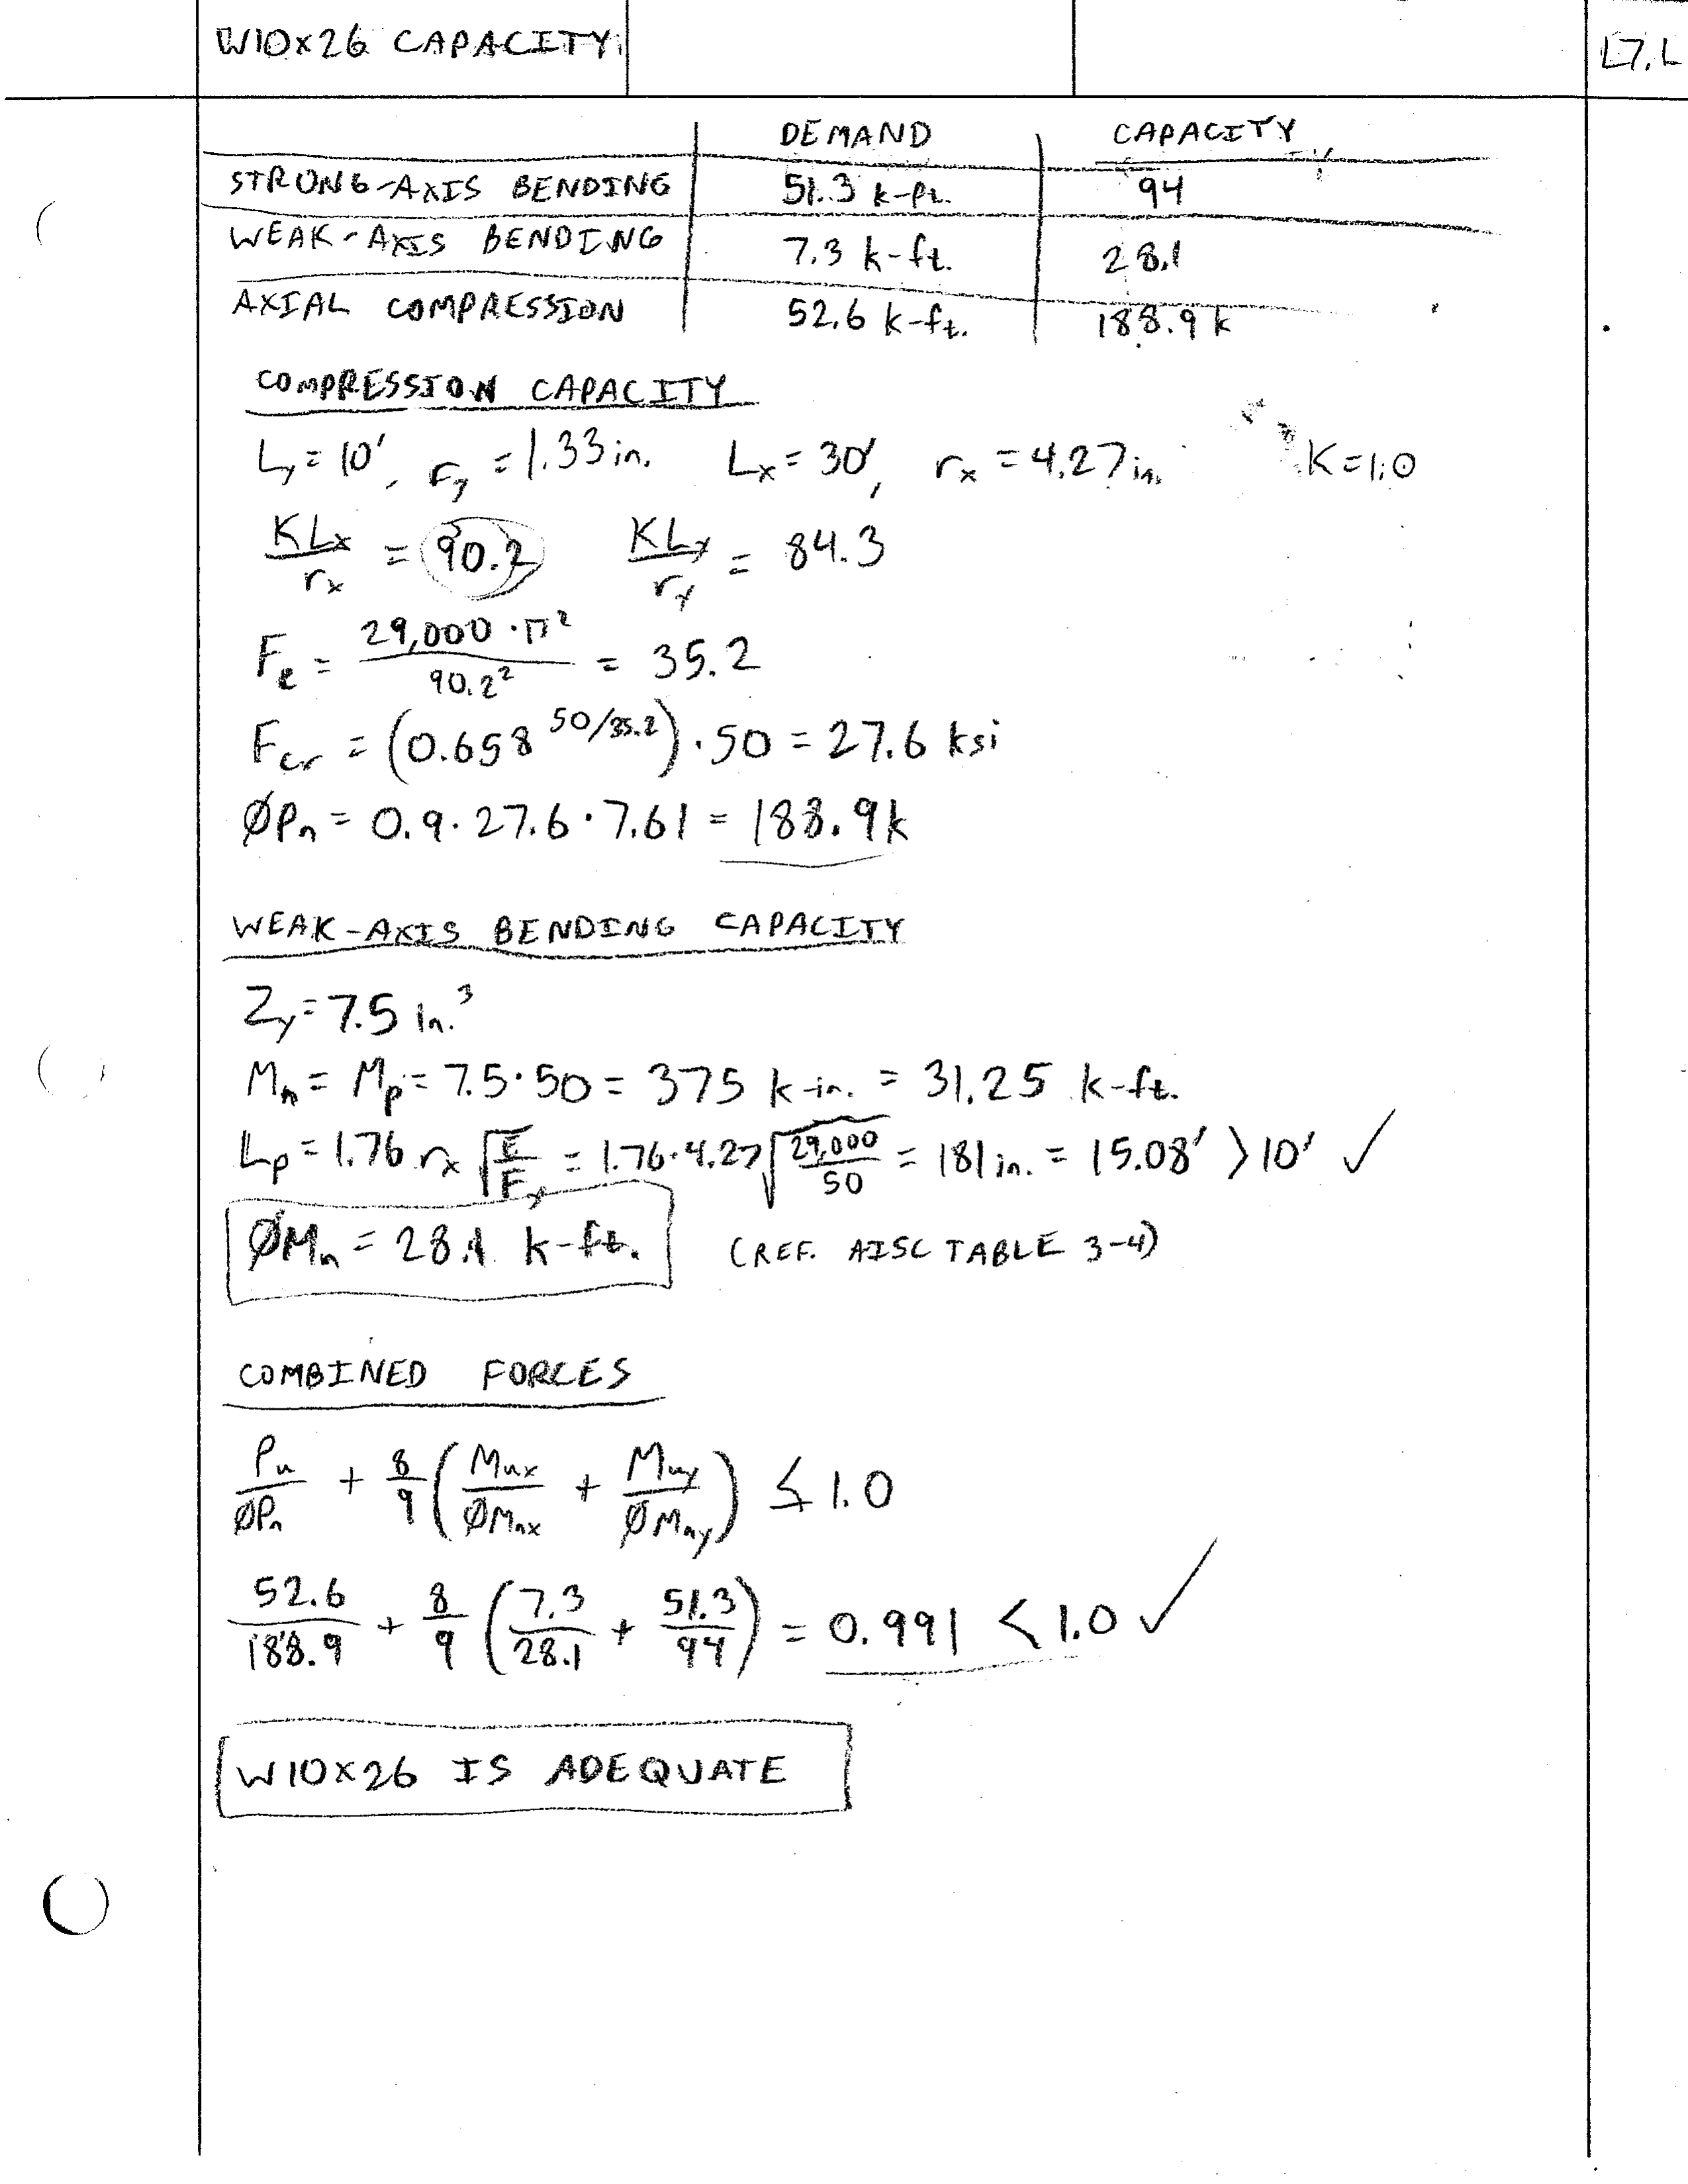 W10x26 CAPACITY
L7.L
DEMAND CAPACITY
STRONG-AXIS BENDING 51.3 k-ft. 94
WEAK-AXIS BENDING 7.3 k-ft. 28.1
AXIAL COMPRESSION 52.6 k-ft. 188.9 k
COMPRESSION CAPACITY
Ly = 10', ry = 1.33 in. Lx = 30', rx = 4.27 in. K = 1.0
KLx/rx = 90.2 KLy/ry = 84.3
Fe = 29,000 · π²/90.2² = 35.2
Fcr = (0.658^50/35.2) · 50 = 27.6 ksi
ØPn = 0.9 · 27.6 · 7.61 = 188.9k
WEAK-AXIS BENDING CAPACITY
Zy = 7.5 in.³
Mn = Mp = 7.5 · 50 = 375 k-in. = 31.25 k-ft.
Lp = 1.76 rx √E/Fy = 1.76 · 4.27 √29,000/50 = 181 in. = 15.08' > 10' ✓
ØMn = 28.1 k-ft. (REF. AISC TABLE 3-4)
COMBINED FORCES
Pu/ØPn + 8/9 (Mux/ØMnx + Muy/ØMny) ≤ 1.0
52.6/188.9 + 8/9 (7.3/28.1 + 51.3/94) = 0.991 < 1.0 ✓
W10x26 IS ADEQUATE